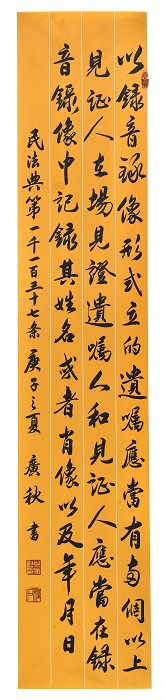 以錄音錄像形式立的遺囑應當有兩個以上
見証人在場見證遺囑人和見証人應當在錄
音錄像中記錄其姓名或者肖像以及年月日
民法典第一千一百三十七条 庚子之夏 廣秋書